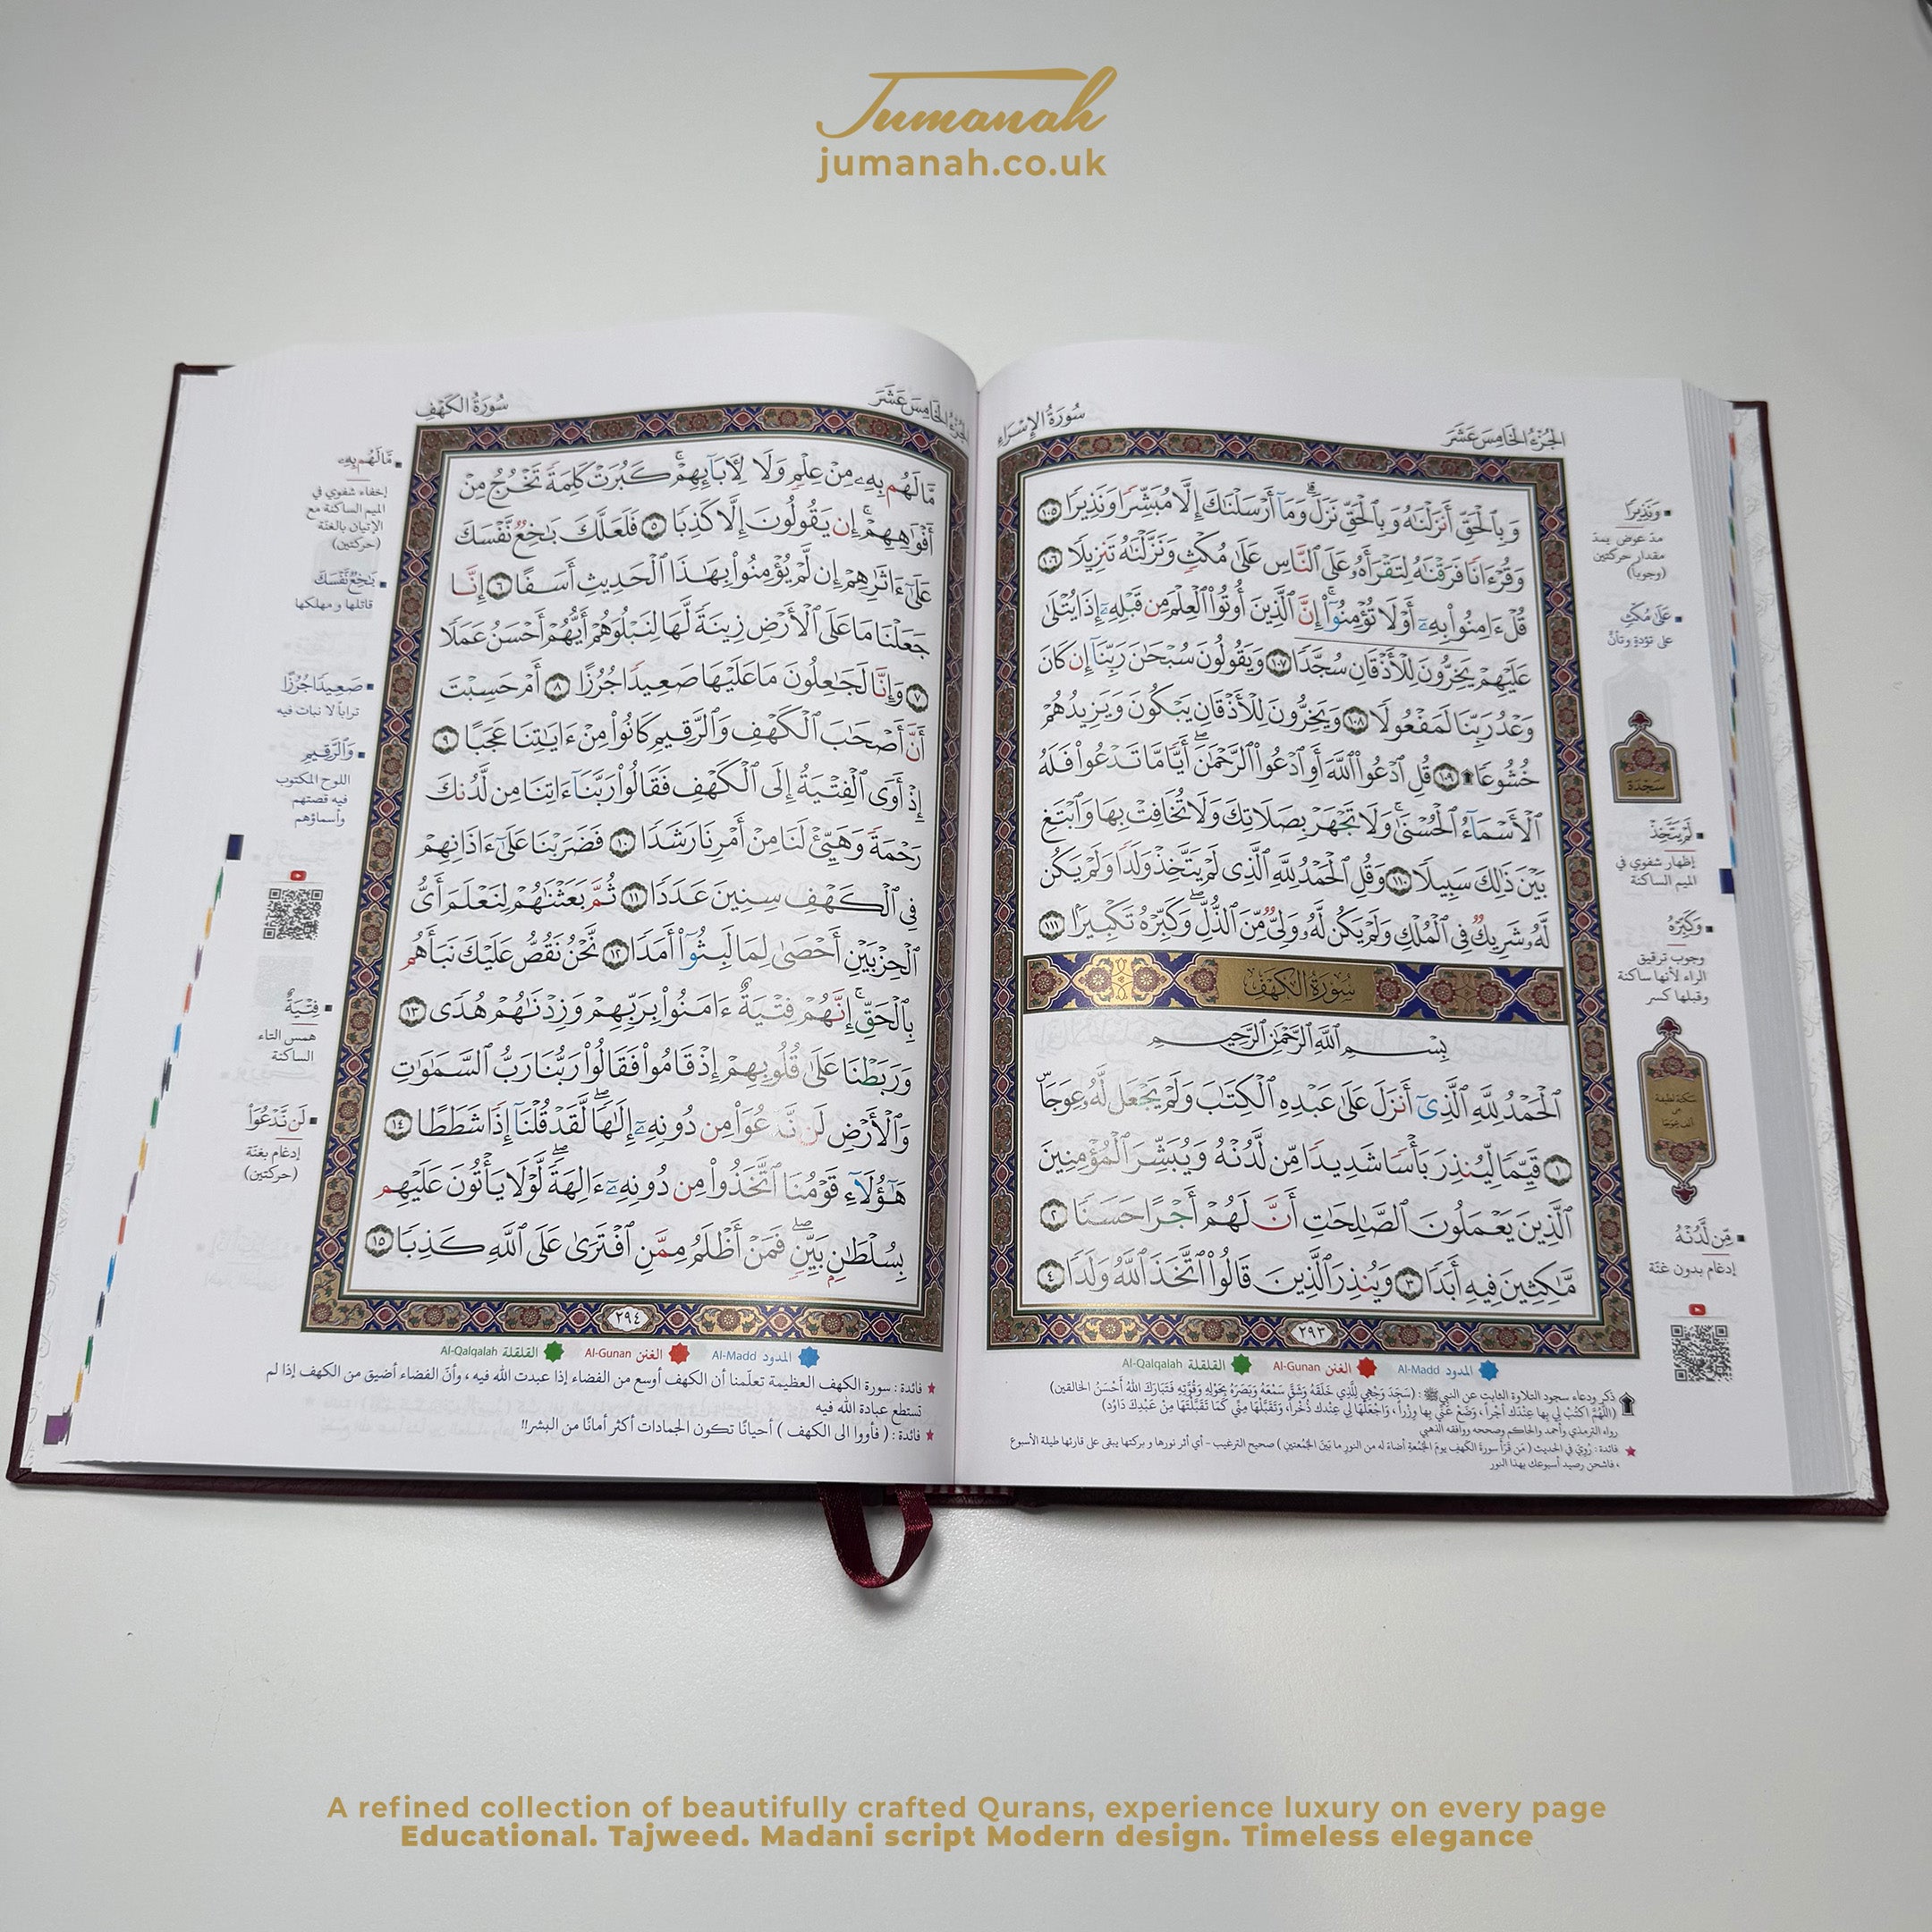 Jumanah
jumanah.co.uk
الجُزْءُ الخَامِسَ عَشَرَ
سُورَةُ الإِسْرَاءِ
وَبِٱلْحَقِّ أَنزَلْنَٰهُ وَبِٱلْحَقِّ نَزَلَ ۗ وَمَآ أَرْسَلْنَٰكَ إِلَّا مُبَشِّرًا وَنَذِيرًا ١٠٥
وَقُرْءَانًا فَرَقْنَٰهُ لِتَقْرَأَهُۥ عَلَى ٱلنَّاسِ عَلَىٰ مُكْثٍ وَنَزَّلْنَٰهُ تَنزِيلًا ١٠٦
قُلْ ءَامِنُوا۟ بِهِۦٓ أَوْ لَا تُؤْمِنُوٓا۟ ۚ إِنَّ ٱلَّذِينَ أُوتُوا۟ ٱلْعِلْمَ مِن قَبْلِهِۦٓ إِذَا يُتْلَىٰ
عَلَيْهِمْ يَخِرُّونَ لِلْأَذْقَانِ سُجَّدًا ١٠٧ وَيَقُولُونَ سُبْحَٰنَ رَبِّنَآ إِن كَانَ
وَعْدُ رَبِّنَا لَمَفْعُولًا ١٠٨ وَيَخِرُّونَ لِلْأَذْقَانِ يَبْكُونَ وَيَزِيدُهُمْ
خُشُوعًا ۩ ١٠٩ قُلِ ٱدْعُوا۟ ٱللَّهَ أَوِ ٱدْعُوا۟ ٱلرَّحْمَٰنَ ۖ أَيًّا مَّا تَدْعُوا۟ فَلَهُ
ٱلْأَسْمَآءُ ٱلْحُسْنَىٰ ۚ وَلَا تَجْهَرْ بِصَلَاتِكَ وَلَا تُخَافِتْ بِهَا وَٱبْتَغِ
بَيْنَ ذَٰلِكَ سَبِيلًا ١١٠ وَقُلِ ٱلْحَمْدُ لِلَّهِ ٱلَّذِى لَمْ يَتَّخِذْ وَلَدًا وَلَمْ يَكُن
لَّهُۥ شَرِيكٌ فِى ٱلْمُلْكِ وَلَمْ يَكُن لَّهُۥ وَلِىٌّ مِّنَ ٱلذُّلِّ ۖ وَكَبِّرْهُ تَكْبِيرًۢا ١١١
سُورَةُ الكَهْفِ
بِسْمِ ٱللَّهِ ٱلرَّحْمَٰنِ ٱلرَّحِيمِ
ٱلْحَمْدُ لِلَّهِ ٱلَّذِىٓ أَنزَلَ عَلَىٰ عَبْدِهِ ٱلْكِتَٰبَ وَلَمْ يَجْعَل لَّهُۥ عِوَجَاۜ
١ قَيِّمًا لِّيُنذِرَ بَأْسًا شَدِيدًا مِّن لَّدُنْهُ وَيُبَشِّرَ ٱلْمُؤْمِنِينَ
ٱلَّذِينَ يَعْمَلُونَ ٱلصَّٰلِحَٰتِ أَنَّ لَهُمْ أَجْرًا حَسَنًا ٢
مَّٰكِثِينَ فِيهِ أَبَدًا ٣ وَيُنذِرَ ٱلَّذِينَ قَالُوا۟ ٱتَّخَذَ ٱللَّهُ وَلَدًا ٤
٢٩٣
وَنَذِيرًا
مدّ عوض يمدّ
مقدار حركتين
(وجوبا)
عَلَىٰ مُكْثٍ
على تؤدةٍ وتأنٍّ
سَجْدَة
لَمْ يَتَّخِذْ
إظهار شفوي في
الميم الساكنة
وَكَبِّرْهُ
وجوب ترقيق
الراء لأنها ساكنة
وقبلها كسر
سكتة لطيفة
على
ألف عوجا
مِّن لَّدُنْهُ
إدغام بدون غنّة
المدود Al-Madd الغنن Al-Gunan القلقلة Al-Qalqalah
ذكر ودعاء سجود التلاوة الثابت عن النبي ﷺ : (سَجَدَ وَجْهِي لِلَّذِي خَلَقَهُ وَشَقَّ سَمْعَهُ وَبَصَرَهُ بِحَوْلِهِ وَقُوَّتِهِ فَتَبَارَكَ اللهُ أَحْسَنُ الخالقين)
(اللَّهُمَّ اكتُبْ لي بِها عِنْدَكَ أجْراً ، وَضَعْ عَنِّي بِها وِزْراً ، وَاجْعَلْها لي عِندك ذُخْراً ، وَتَقَبَّلْها مِنِّي كَمَا تَقَبَّلْتَهَا مِنْ عَبْدِكَ دَاوُد)
رواه الترمذي وأحمد والحاكم وصححه ووافقه الذهبي
فائدة : رُوِيَ في الحديث ( مَن قَرَأ سورةَ الكهف يومَ الجُمُعةِ أضاءَ له من النورِ ما بَيْنَ الجُمُعتينِ ) صحيح الترغيب - أي أثر نورها و بركتها يبقى على قارئها طيلة الأسبوع
، فاشحن رصيد أسبوعك بهذا النور
الجُزْءُ الخَامِسَ عَشَرَ
سُورَةُ الكَهْفِ
مَّا لَهُم بِهِۦ مِنْ عِلْمٍ وَلَا لِـَٔابَآئِهِمْ ۚ كَبُرَتْ كَلِمَةً تَخْرُجُ مِنْ
أَفْوَٰهِهِمْ ۚ إِن يَقُولُونَ إِلَّا كَذِبًا ٥ فَلَعَلَّكَ بَٰخِعٌ نَّفْسَكَ
عَلَىٰٓ ءَاثَٰرِهِمْ إِن لَّمْ يُؤْمِنُوا۟ بِهَٰذَا ٱلْحَدِيثِ أَسَفًا ٦ إِنَّا
جَعَلْنَا مَا عَلَى ٱلْأَرْضِ زِينَةً لَّهَا لِنَبْلُوَهُمْ أَيُّهُمْ أَحْسَنُ عَمَلًا
٧ وَإِنَّا لَجَٰعِلُونَ مَا عَلَيْهَا صَعِيدًا جُرُزًا ٨ أَمْ حَسِبْتَ
أَنَّ أَصْحَٰبَ ٱلْكَهْفِ وَٱلرَّقِيمِ كَانُوا۟ مِنْ ءَايَٰتِنَا عَجَبًا ٩
إِذْ أَوَى ٱلْفِتْيَةُ إِلَى ٱلْكَهْفِ فَقَالُوا۟ رَبَّنَآ ءَاتِنَا مِن لَّدُنكَ
رَحْمَةً وَهَيِّئْ لَنَا مِنْ أَمْرِنَا رَشَدًا ١٠ فَضَرَبْنَا عَلَىٰٓ ءَاذَانِهِمْ
فِى ٱلْكَهْفِ سِنِينَ عَدَدًا ١١ ثُمَّ بَعَثْنَٰهُمْ لِنَعْلَمَ أَىُّ
ٱلْحِزْبَيْنِ أَحْصَىٰ لِمَا لَبِثُوٓا۟ أَمَدًا ١٢ نَّحْنُ نَقُصُّ عَلَيْكَ نَبَأَهُم
بِٱلْحَقِّ ۚ إِنَّهُمْ فِتْيَةٌ ءَامَنُوا۟ بِرَبِّهِمْ وَزِدْنَٰهُمْ هُدًى ١٣
وَرَبَطْنَا عَلَىٰ قُلُوبِهِمْ إِذْ قَامُوا۟ فَقَالُوا۟ رَبُّنَا رَبُّ ٱلسَّمَٰوَٰتِ
وَٱلْأَرْضِ لَن نَّدْعُوَا۟ مِن دُونِهِۦٓ إِلَٰهًا ۖ لَّقَدْ قُلْنَآ إِذًا شَطَطًا ١٤
هَٰٓؤُلَآءِ قَوْمُنَا ٱتَّخَذُوا۟ مِن دُونِهِۦٓ ءَالِهَةً ۖ لَّوْلَا يَأْتُونَ عَلَيْهِم
بِسُلْطَٰنٍۭ بَيِّنٍ ۖ فَمَنْ أَظْلَمُ مِمَّنِ ٱفْتَرَىٰ عَلَى ٱللَّهِ كَذِبًا ١٥
٢٩٤
مَّا لَهُم بِهِۦ
إخفاء شفوي في
الميم الساكنة مع
الإتيان بالغنّة
(حركتين)
بَٰخِعٌ نَّفْسَكَ
قاتلها و مهلكها
صَعِيدًا جُرُزًا
تراباً لا نبات فيه
وَٱلرَّقِيمِ
اللوح المكتوب
فيه قصتهم
وأسماؤهم
فِتْيَةٌ
همس التاء
الساكنة
لَن نَّدْعُوَا۟
إدغام بغنّة
(حركتين)
المدود Al-Madd الغنن Al-Gunan القلقلة Al-Qalqalah
فائدة : سورة الكهف العظيمة تعلّمنا أن الكهف أوسع من الفضاء إذا عبدت الله فيه ، وأنّ الفضاء أضيق من الكهف إذا لم
تستطع عبادة الله فيه
فائدة : ( فأووا الى الكهف ) أحيانًا تكون الجمادات أكثر أمانًا من البشر!!
A refined collection of beautifully crafted Qurans, experience luxury on every page
Educational. Tajweed. Madani script Modern design. Timeless elegance